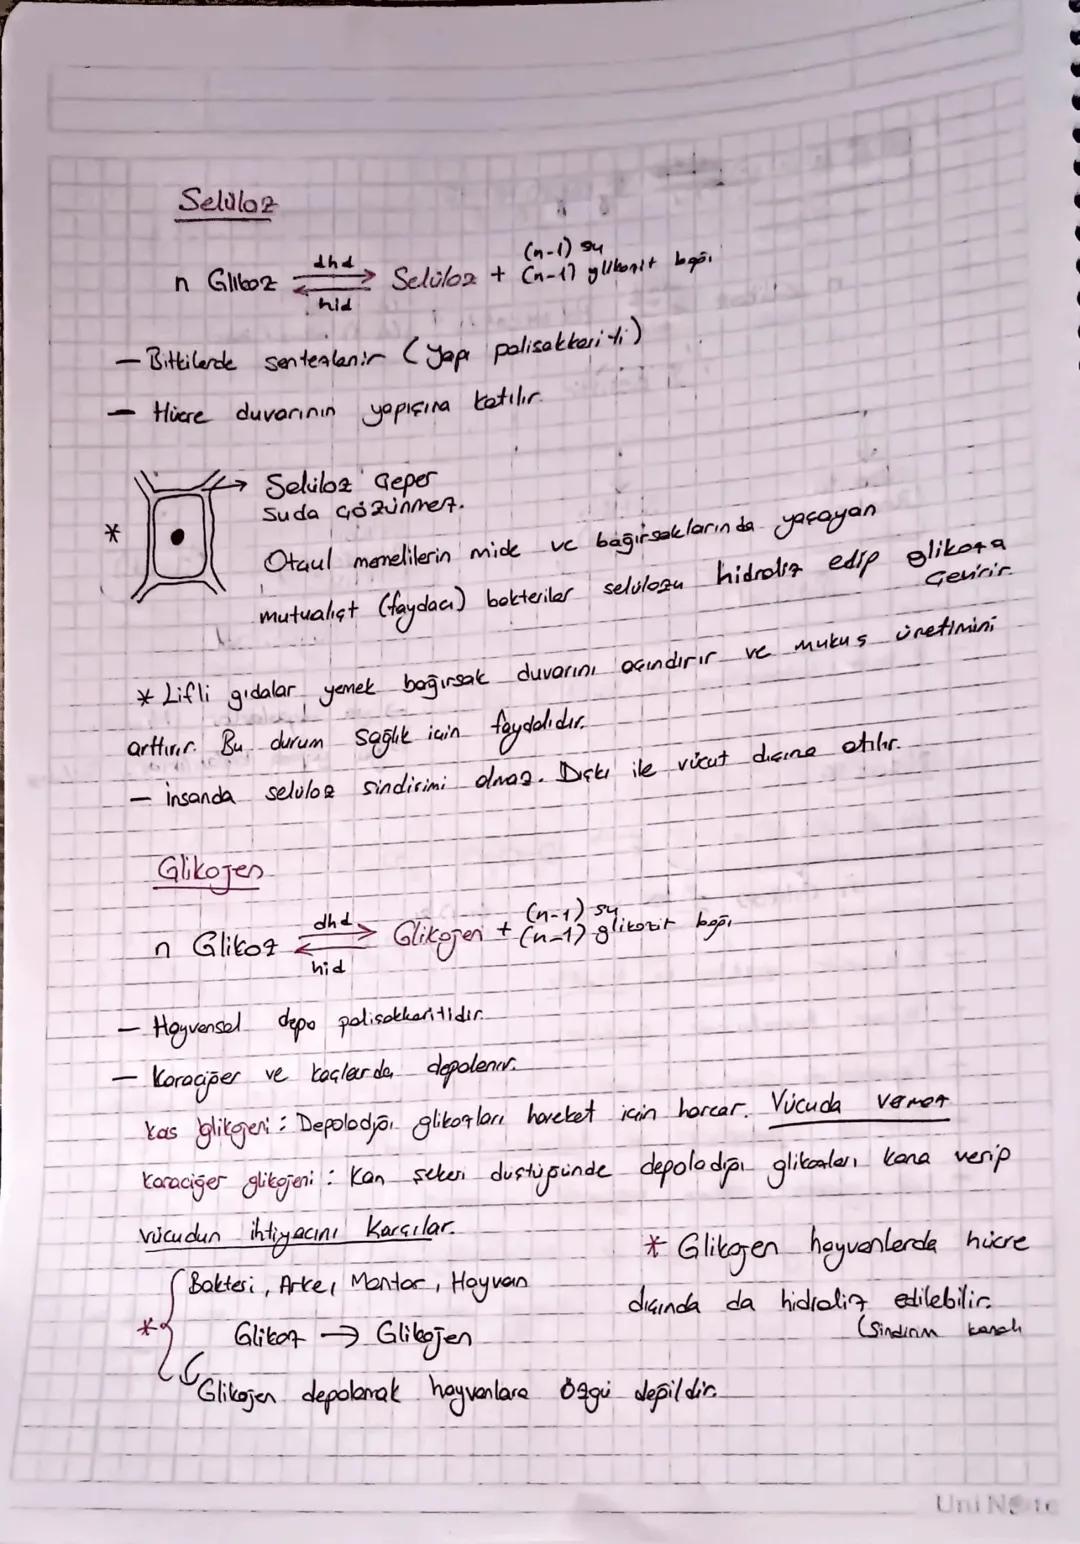 Selüloz
n Glikoz dhd Selüloz + (n-1) su
hid (n-1) glikozit bağı
- Bitkilerde sentezlenir (yapı polisakkariti)
- Hücre duvarının yapısına katılır.
* Selüloz çeper
suda çözünmez.
Otçul memelilerin mide ve bağırsaklarında yaşayan
mutualist (faydacı) bakteriler selülozu hidroliz edip glikoza
çevirir.
* Lifli gıdalar yemek bağırsak duvarını aşındırır ve mukus üretimini
arttırır. Bu durum sağlık için faydalıdır.
- insanda selüloz sindirimi olmaz. Dışkı ile vücut dışına atılır.
Glikojen
n Glikoz dhd Glikojen + (n-1) su
hid (n-1) glikozit bağı
- Hayvansal depo polisakkaritidir.
- Karaciğer ve kaslarda depolanır.
Kas glikojeni : Depoladığı glikozları hareket için harcar. Vücuda vermez
Karaciğer glikojeni : Kan şekeri düştüğünde depoladığı glikozları kana verip
vücudun ihtiyacını karşılar.
* Glikojen hayvanlarda hücre
dışında da hidroliz edilebilir.
(Sindirim kanalı
* Bakteri, Arke, Mantar, Hayvan
Glikoz → Glikojen
Glikojen depolamak hayvanlara özgü değildir.
UniNote